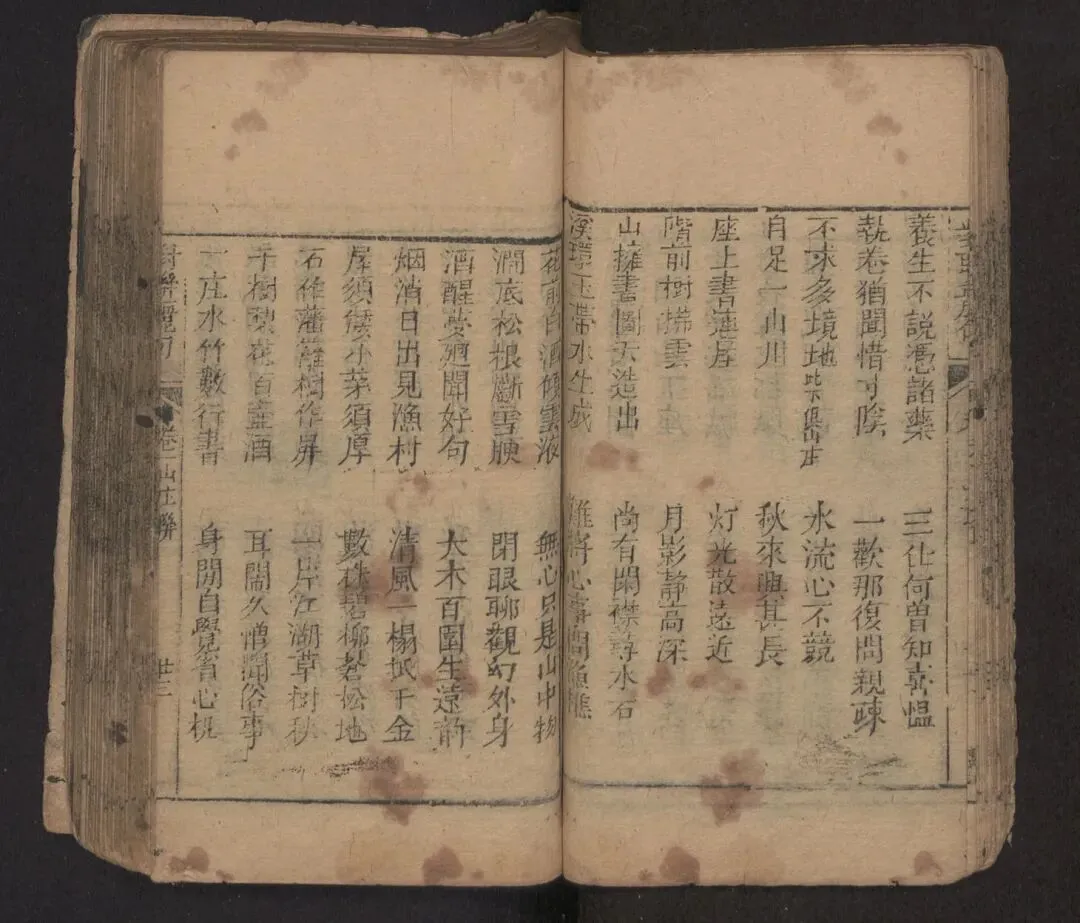 養生不說憑諸藥　三仕何曾知喜慍
執卷猶聞惜寸陰　一歡那復問親疎
不求多境地　水流心不競
自足一山川　秋來興甚長
座上書連屋　灯光散遠近
階前樹拂雲　月影静高深
山擁書圖天造出　尚有閑襟尋水石
溪環玉帶水生成　難將心事問漁樵
花前白酒傾雲液　無心只是山中物
澗底松根斸雪腴　閉眼聊觀幻外身
酒醒夢廻聞好句　大木百圍生遠韵
烟消日出見漁村　清風一榻抵千金
屋須矮小菜須厚　數株碧柳蒼松地
石作藩籬樹作屏　一片江湖草樹秋
千樹梨花百壼酒　耳閙久憎聞俗事
一庄水竹數行書　身閒自覺省心机
卷一山庄聯　廿三